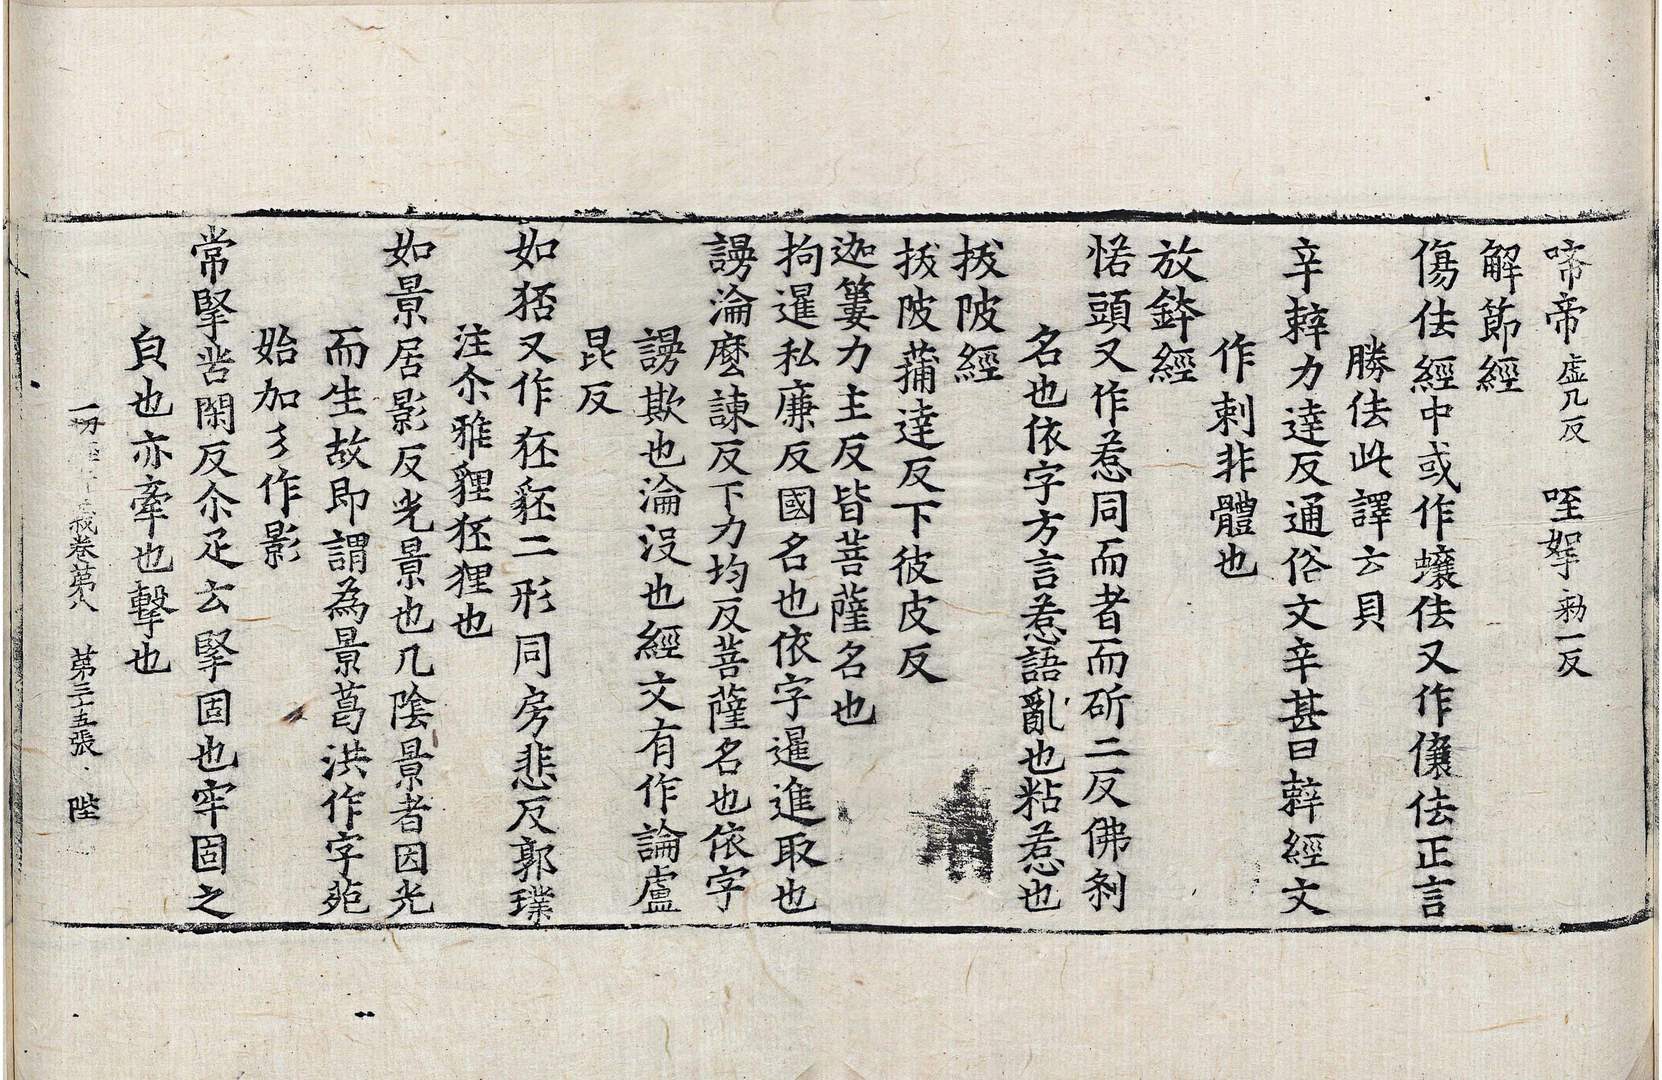 啼帝虛几反　咥㜸勑一反
解節經
傷佉經中或作蠰佉又作儴佉正言
勝佉此譯云貝
辛辢力達反通俗文辛甚曰辢經文
作刺非體也
放鉢經
惦頭又作惹同而者而斫二反佛刹
名也依字方言惹語亂也粘惹也
拔陂經
拔陂蒲達反下彼皮反
迦簍力主反皆菩薩名也
拘暹私廉反國名也依字暹進取也
謾淪麼諫反下力均反菩薩名也依字
謾欺也淪沒也經文有作論盧
昆反
如狉又作狂豾二形同房悲反郭璞
注尒雅貍狉狸也
如景居影反光景也凡陰景者因光
而生故即謂為景葛洪作字苑
始加彡作影
常堅苦閑反尒疋云堅固也牢固之
皃也亦牽也擊也
一切義卷第八　第三十五張　陛